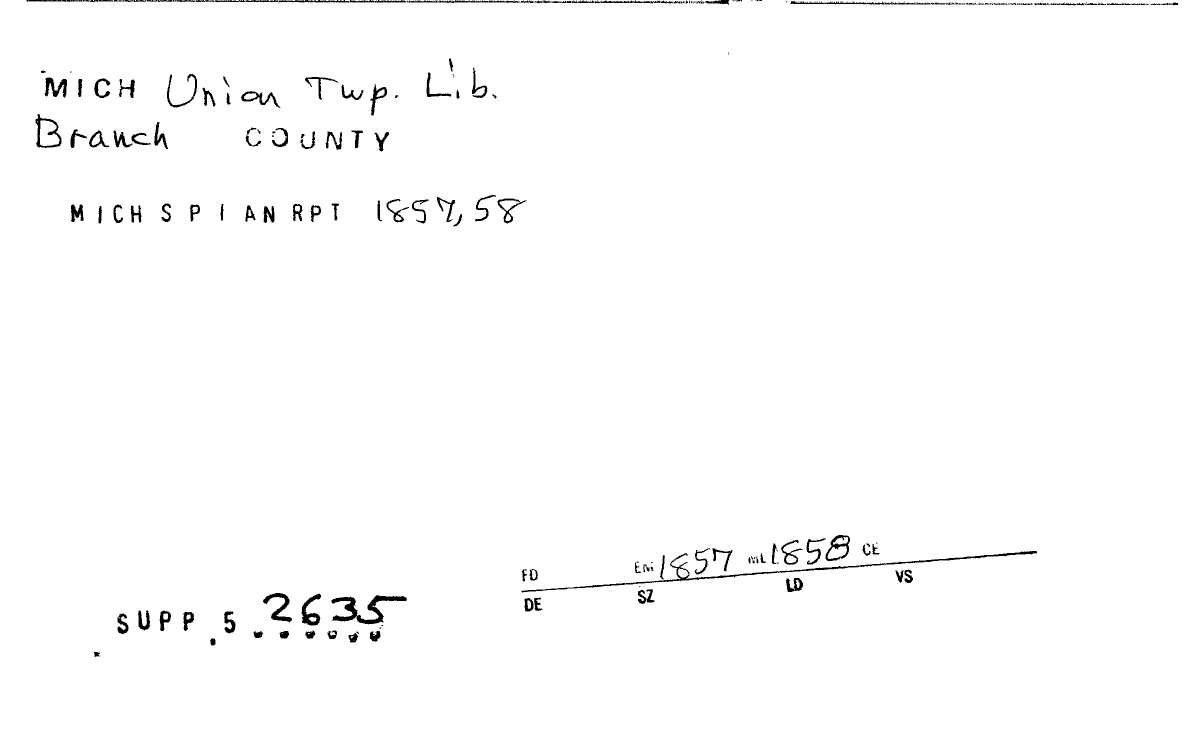 MICH Union Twp. Lib.
Branch COUNTY
MICH S P I AN RPT 1857, 58
FD EM 1857 ML 1858 CE
DE SZ LD VS
SUPP. 5 2635